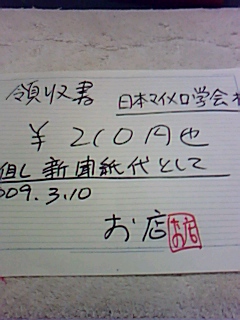 領収書
日本マイメロ学会
¥210円也
但し新聞紙代として
009.3.10
お店
お店